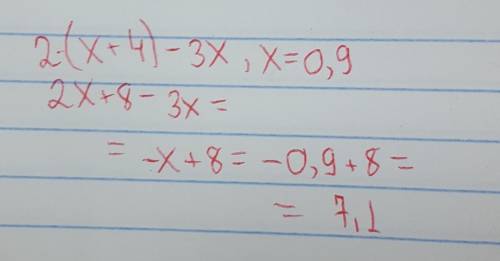 2·(x+4)-3x, x=0,9
2x+8-3x=
= -x+8= -0,9+8=
= 7,1